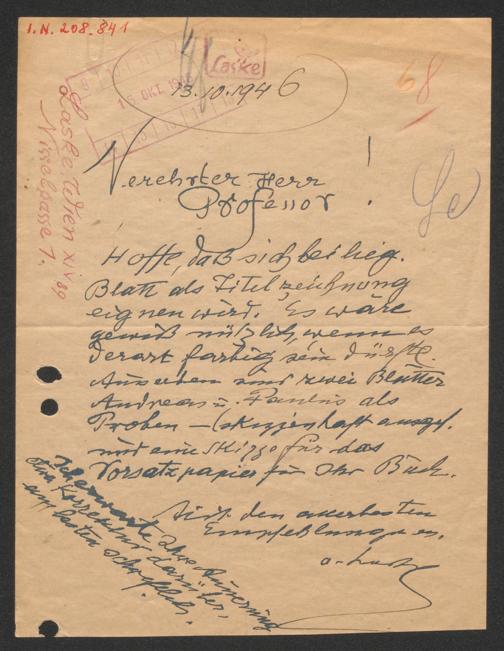 I.N. 208.841
Laske
16. OKT. 1946
13.10.1946
68
Laske Wien XIV/89
Nisselgasse 1.
Verehrter Herr
Professor!
Hoffe, daß sich beilieg.
Blatt als Titelzeichnung
eignen wird. Es wäre
gewiß nützlich, wenn es
derart farbig sein dürfte.
Ausserdem sind zwei Blätter
Andreas u. Paulus als
Proben – (skizzenhaft ausgef.
und eine Skizze für das
Vorsatzpapier für Ihr Buch.
Mit den allerbesten
Empfehlungen.
O. Laske
Ich erwarte Ihre Äusserung
darüber,
am besten schriftlich.